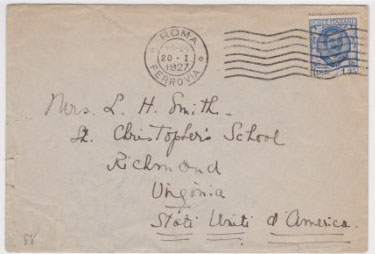 ROMA
20 · I
1927
FERROVIA
POSTE ITALIANE
Mrs. L. H. Smith.
St. Christopher's School
Richmond
Virginia
Stati Uniti d'America.